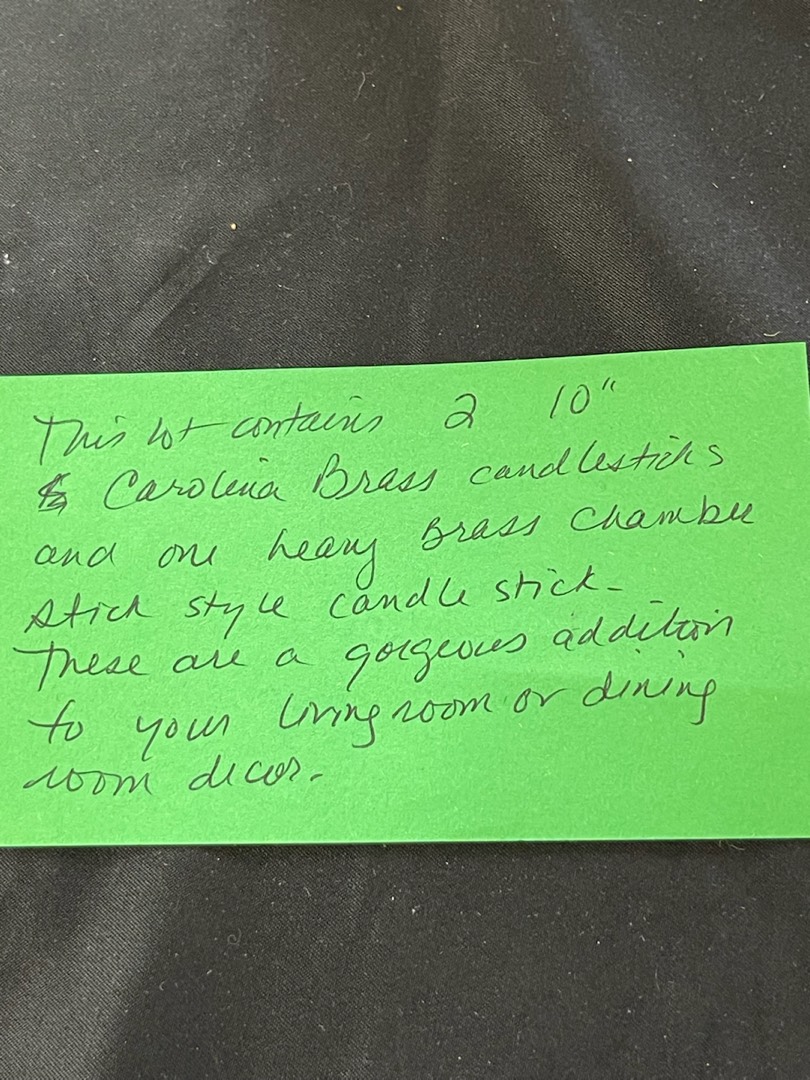 This lot contains 2 10"
Carolina Brass candlesticks
and one heavy Brass Chamber
stick style candle stick.
These are a gorgeous addition
to your living room or dining
room decor.